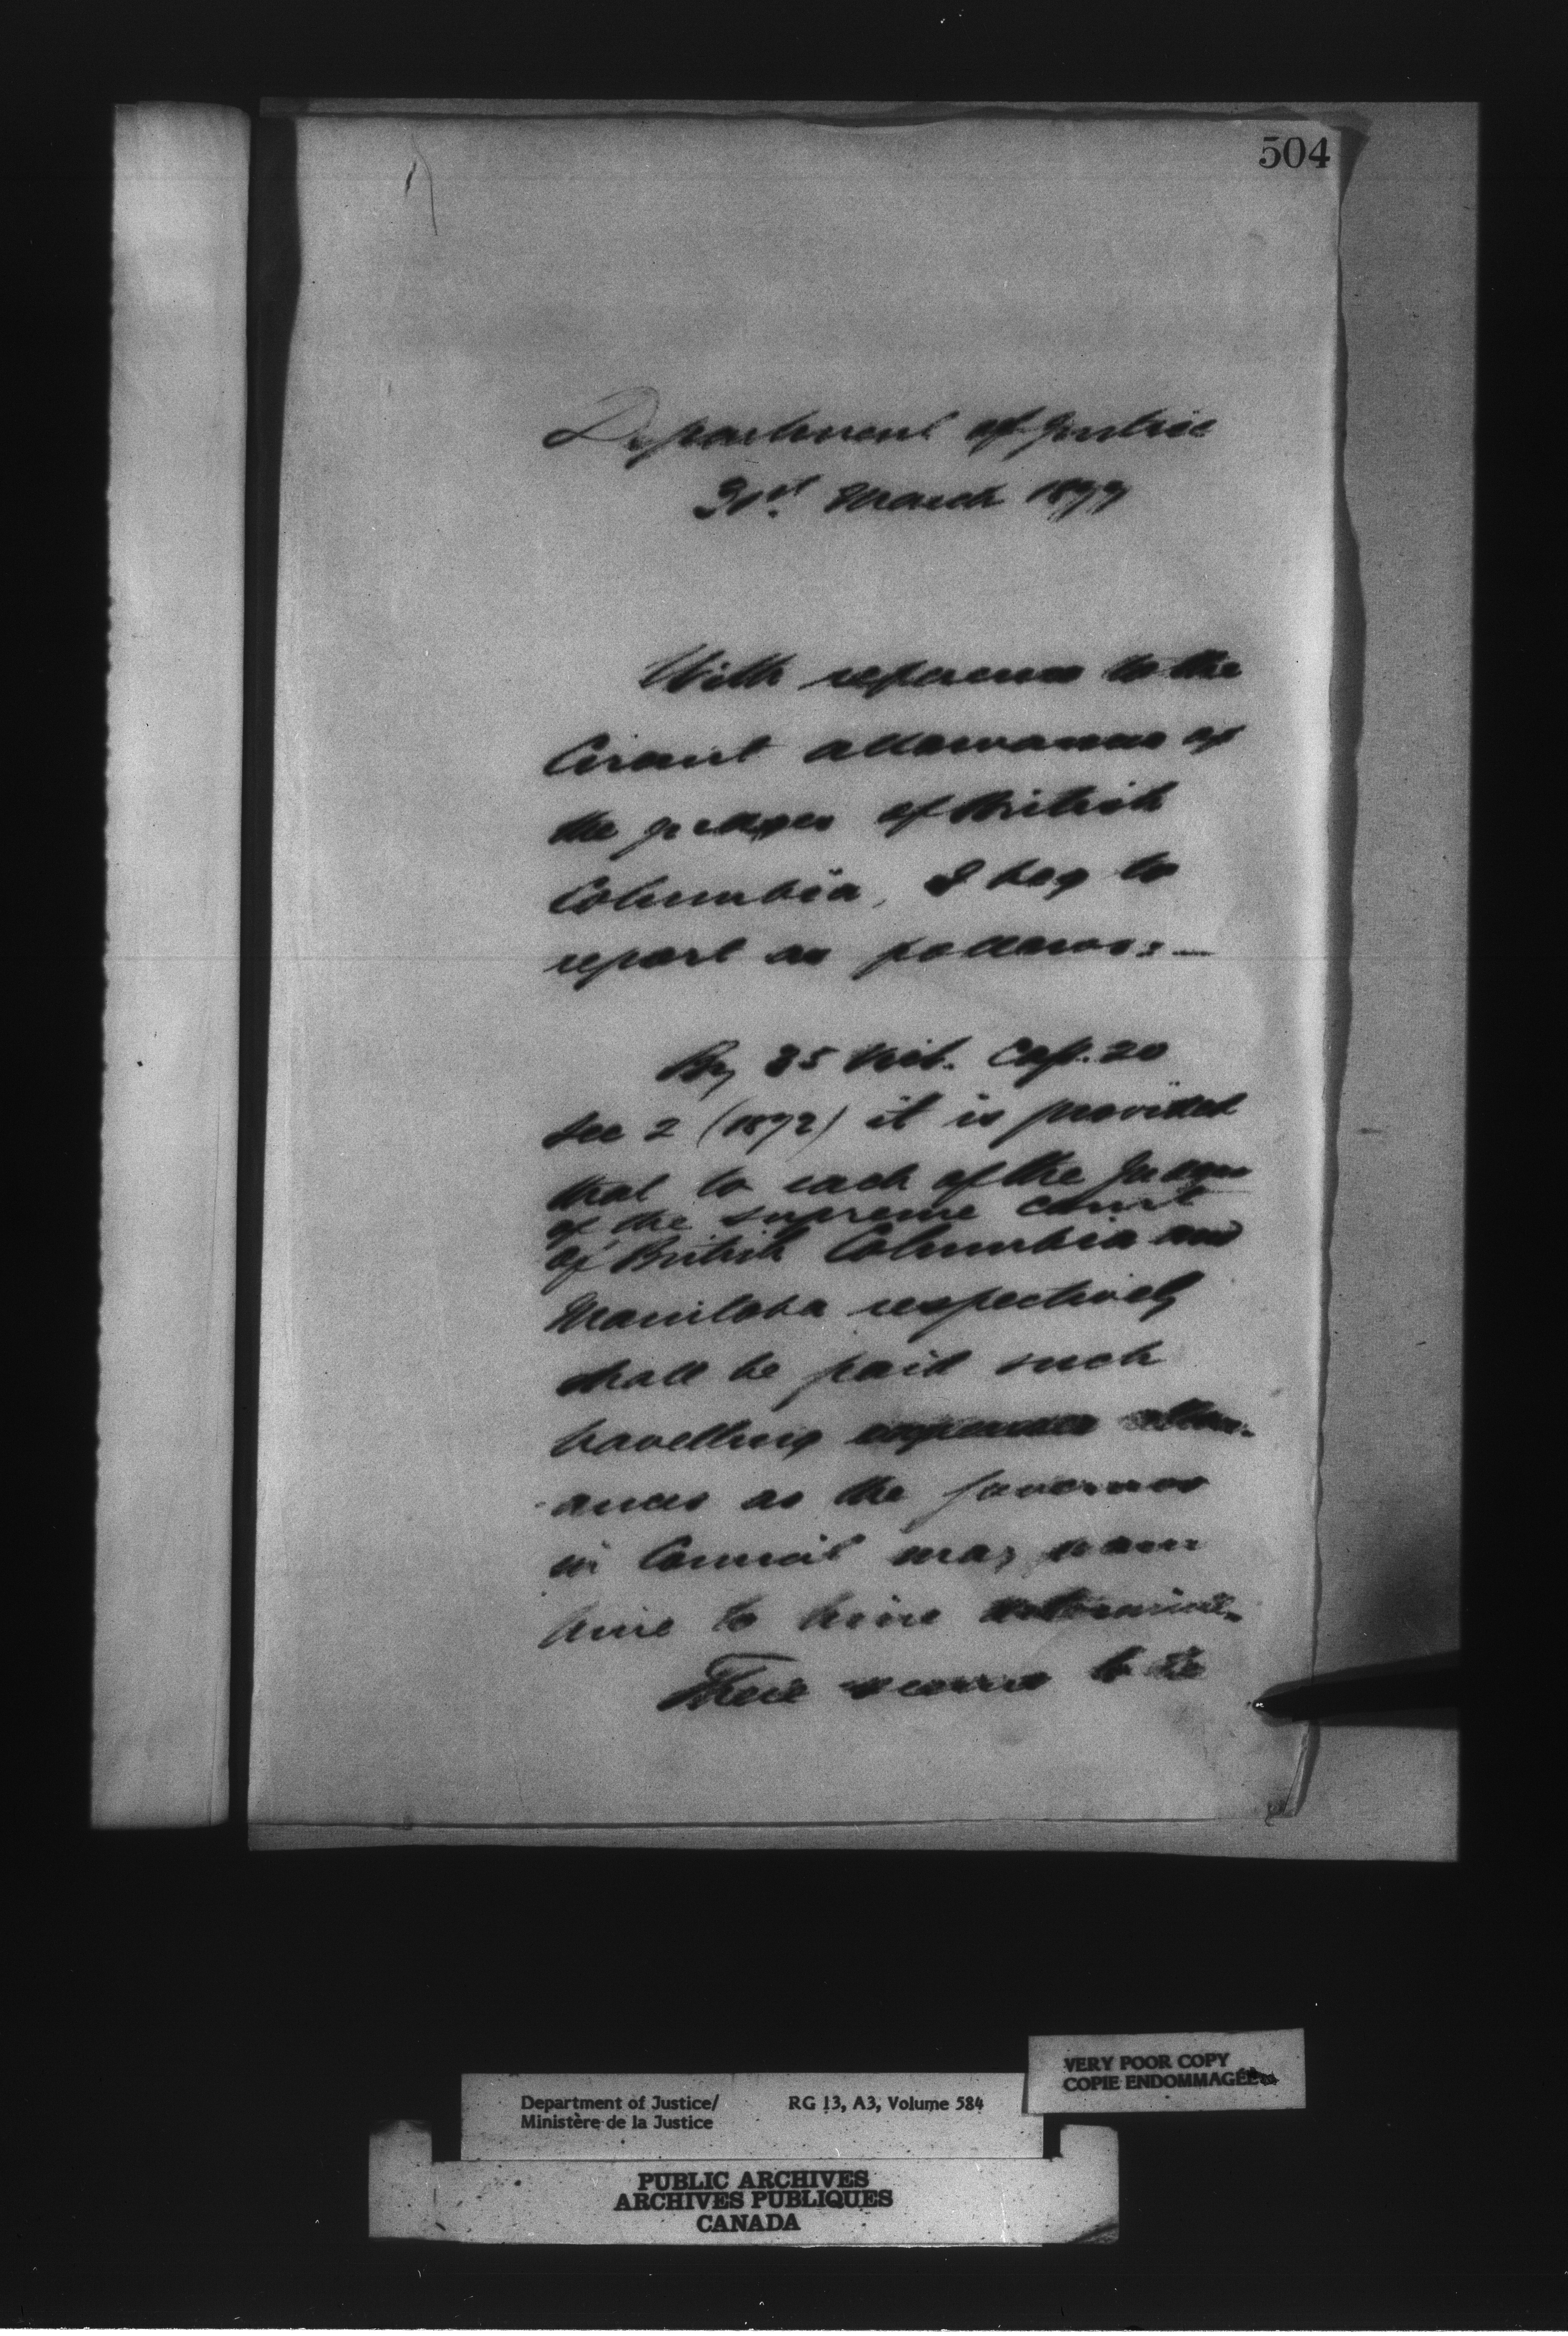 504
Department of Justice
31st March 1877
With reference to the
Circuit allowances of
the judges of British
Columbia, I beg to
report as follows:—
By 35 Vict. Cap. 20
sec 2 (1872) it is provided
that to each of the Judges
of the supreme court
of British Columbia and
Manitoba respectively
shall be paid such
travelling expenses allow-
ances as the Governor
in Council may from
time to time determine.
There seems to be
Department of Justice/
Ministère de la Justice
RG 13, A3, Volume 584
VERY POOR COPY
COPIE ENDOMMAGÉE
PUBLIC ARCHIVES
ARCHIVES PUBLIQUES
CANADA